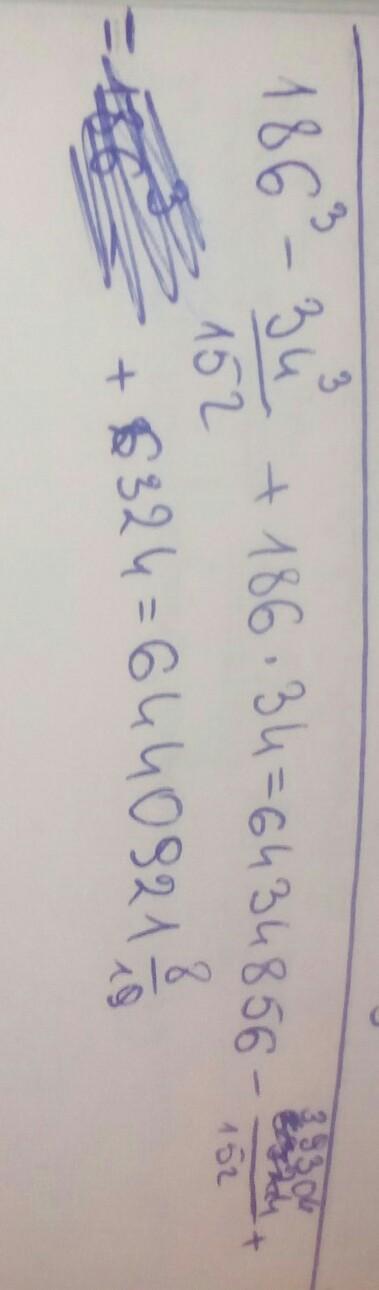 186³ - 34³/152 + 186 · 34 = 6434856 - 39304/152 +
+ 6324 = 6440921 8/19